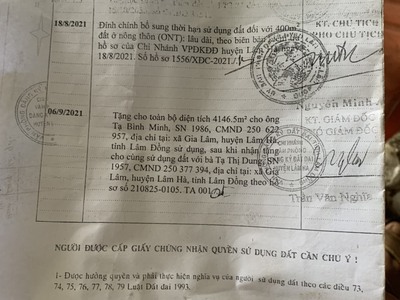 18/8/2021
Đính chính bổ sung thời hạn sử dụng đất đối với 400m
đất ở nông thôn (ONT): lâu dài, theo biên bản
hồ sơ của Chi Nhánh VPĐKĐĐ huyện Lâm
18/8/2021. Số hồ sơ 1556/XĐC-2021./.
KT. CHỦ TỊCH
PHÓ CHỦ TỊCH
Nguyễn Minh
6/9/2021
Tặng cho toàn bộ diện tích 4146.5m² cho ông
Tạ Bình Minh, SN 1986, CMND 250 622
957, địa chỉ tại: xã Gia Lâm, huyện Lâm Hà,
tỉnh Lâm Đồng sử dụng, sau khi nhận tặng
cho cùng sử dụng đất với bà Tạ Thị Dung, SN
1957, CMND 250 377 394, địa chỉ tại: xã Gia
Lâm, huyện Lâm Hà, tỉnh Lâm Đồng theo hồ
sơ số 210825-0105. TA 001
KT. GIÁM ĐỐC
PHÓ GIÁM ĐỐC
Trần Văn Nghĩa
NGƯỜI ĐƯỢC CẤP GIẤY CHỨNG NHẬN QUYỀN SỬ DỤNG ĐẤT CẦN CHÚ Ý !
1- Được hưởng quyền và phải thực hiện nghĩa vụ của người sử dụng đất theo các điều 73,
74, 75, 76, 77, 78, 79 Luật Đất đai 1993.